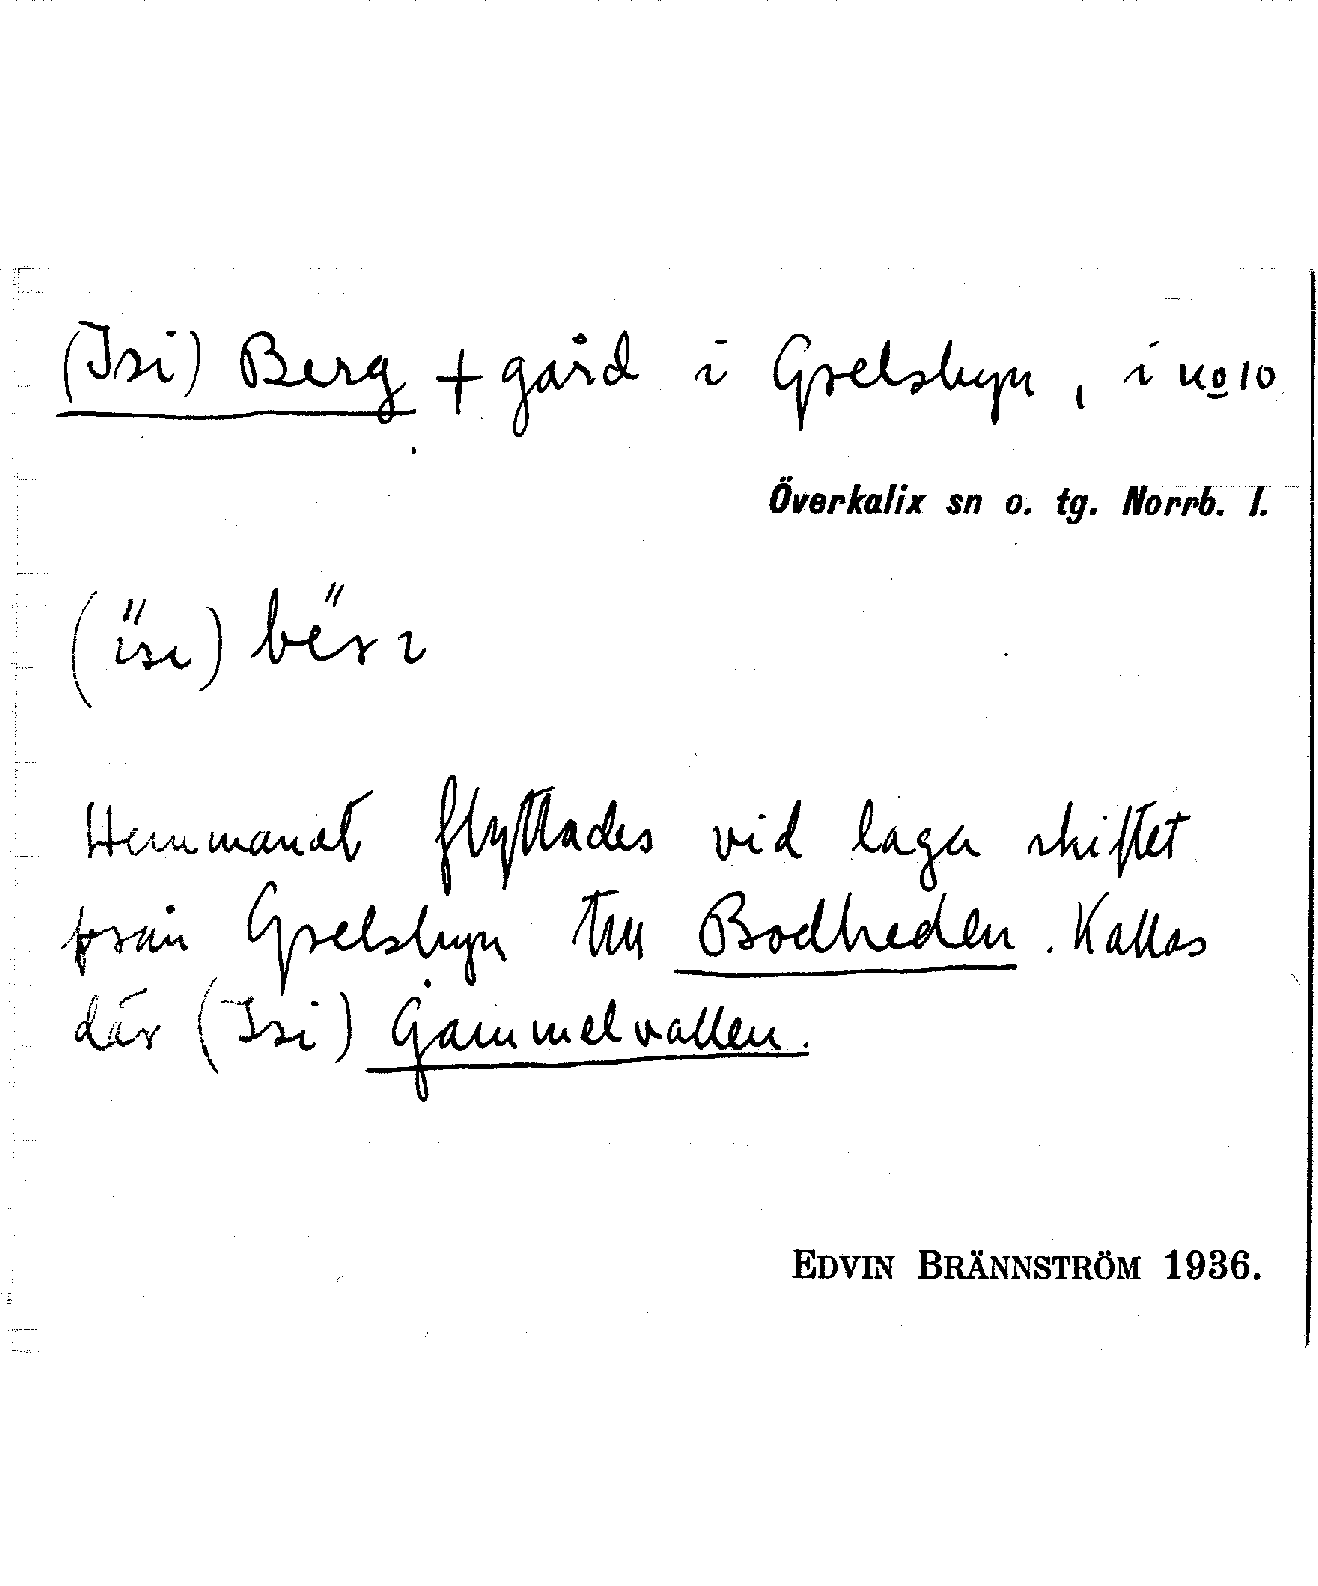 (Isi) Berg + gård i Grelsbyn, i no 10
Överkalix sn o. tg. Norrb. l.
(ı̋sı) be̋rı
Hemmanet flyttades vid laga skiftet
från Grelsbyn till Bodheden. Kallas
där (Isi) Gammelvallen.
EDVIN BRÄNNSTRÖM 1936.